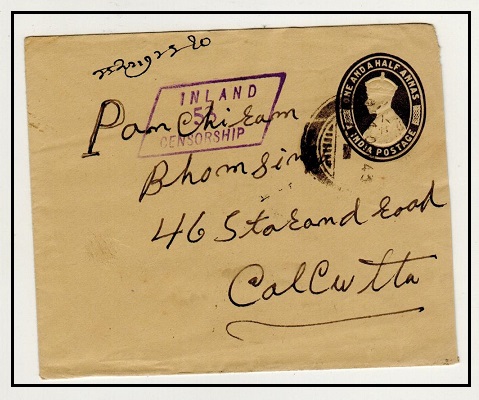 INLAND
55
CENSORSHIP
ONE AND A HALF ANNAS
INDIA POSTAGE
43
Panchiram
Bhomsing
46 Starand road
Calcutta